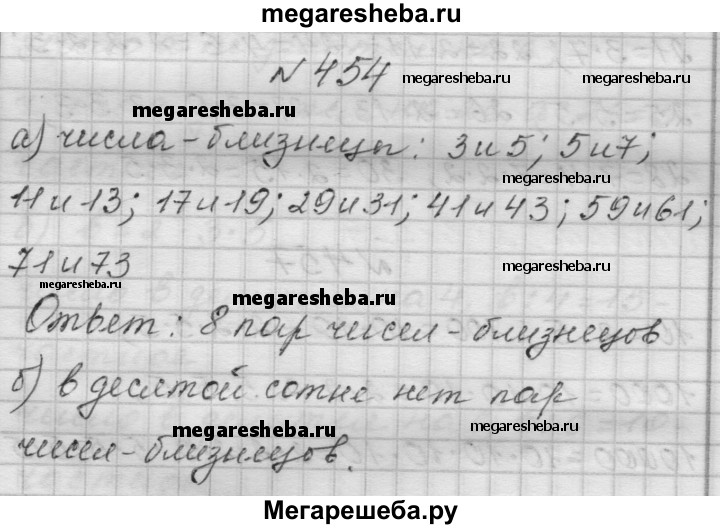 megaresheba.ru
№ 454
megaresheba.ru
megaresheba.ru
megaresheba.ru
а) числа-близнецы: 3 и 5; 5 и 7;
megaresheba.ru
11 и 13; 17 и 19; 29 и 31; 41 и 43; 59 и 61;
71 и 73
megaresheba.ru
megaresheba.ru
megaresheba.ru
Ответ: 8 пар чисел-близнецов
б) в десятой сотне нет пар
megaresheba.ru
megaresheba.ru
чисел-близнецов.
Мегарешеба.ру